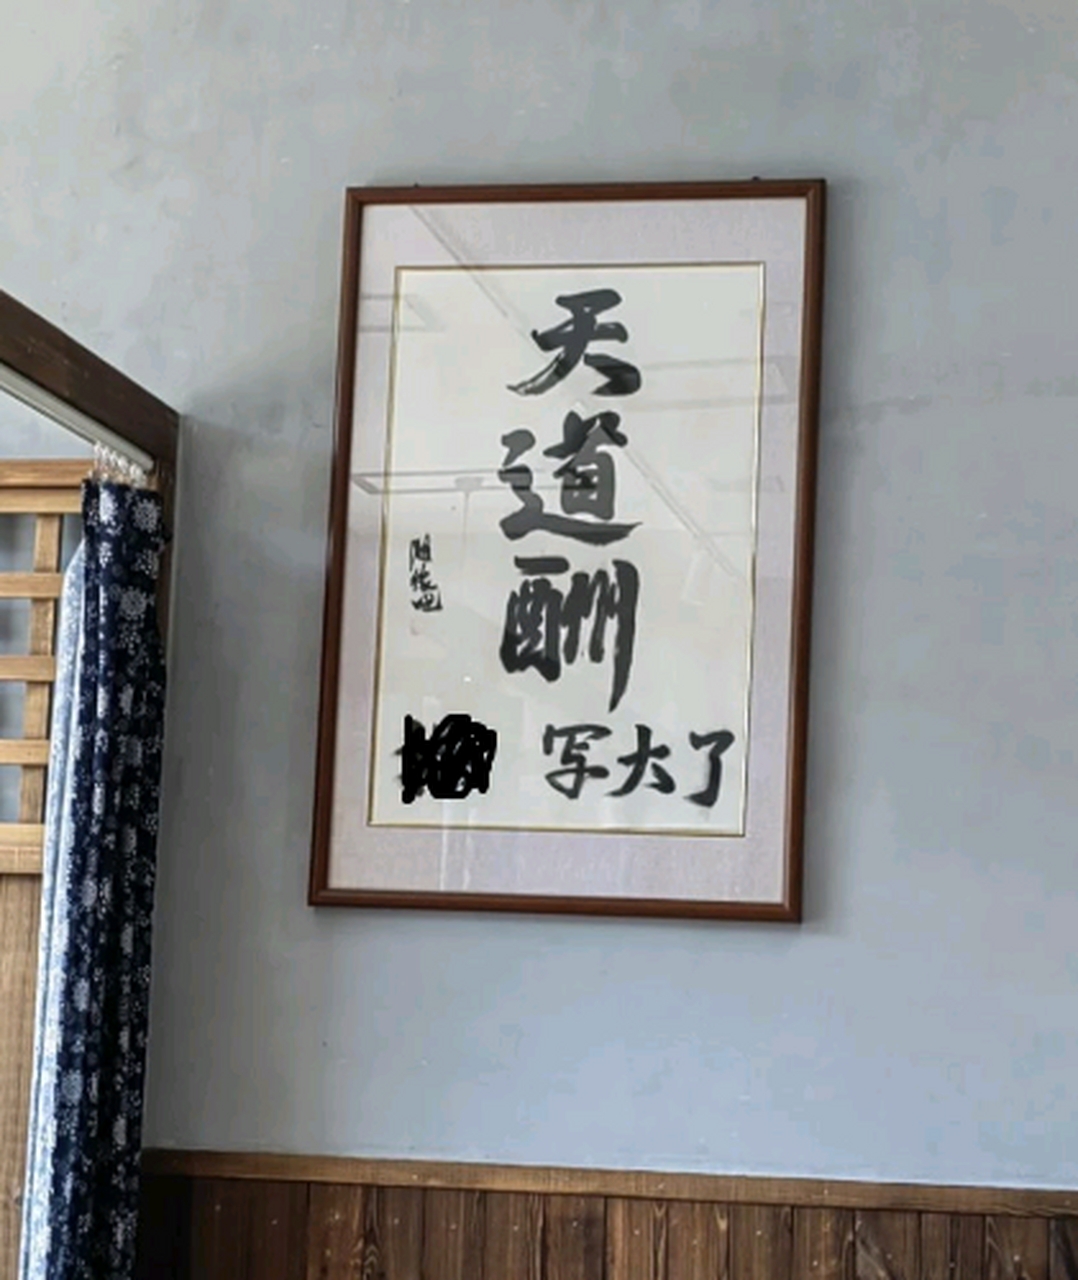 天道酬
写大了
随侬吧